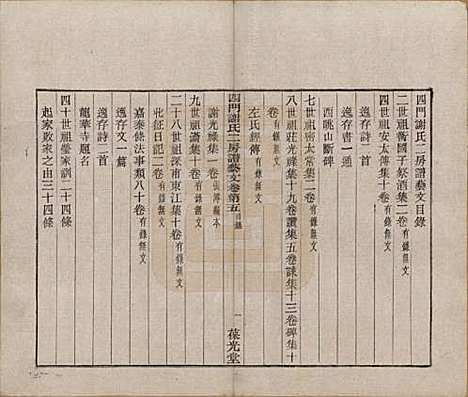 四門謝氏二房譜藝文目錄
二世祖衡國子祭酒集二卷有錄無文
四世祖安太傅集十卷有錄無文
逸存書一通
逸存詩二首
西眺山斷碑
七世祖朏太常集二卷有錄無文
八世祖莊光祿集十九卷讚集五卷誄集十三卷碑集十
卷有錄無文
左氏經傳
四門謝氏二房譜藝文卷第五 目錄
一
葆光堂
謝光祿集一卷
九世祖瀟集十卷有錄無文
二十八世祖深甫東江集十卷有錄無文
北征日記二卷
嘉泰條法事類八十卷有錄無文
逸存文一篇
逸存詩二首
龍華寺題名
四十世祖瑩家訓二十四條
起家敗家之由三十四條